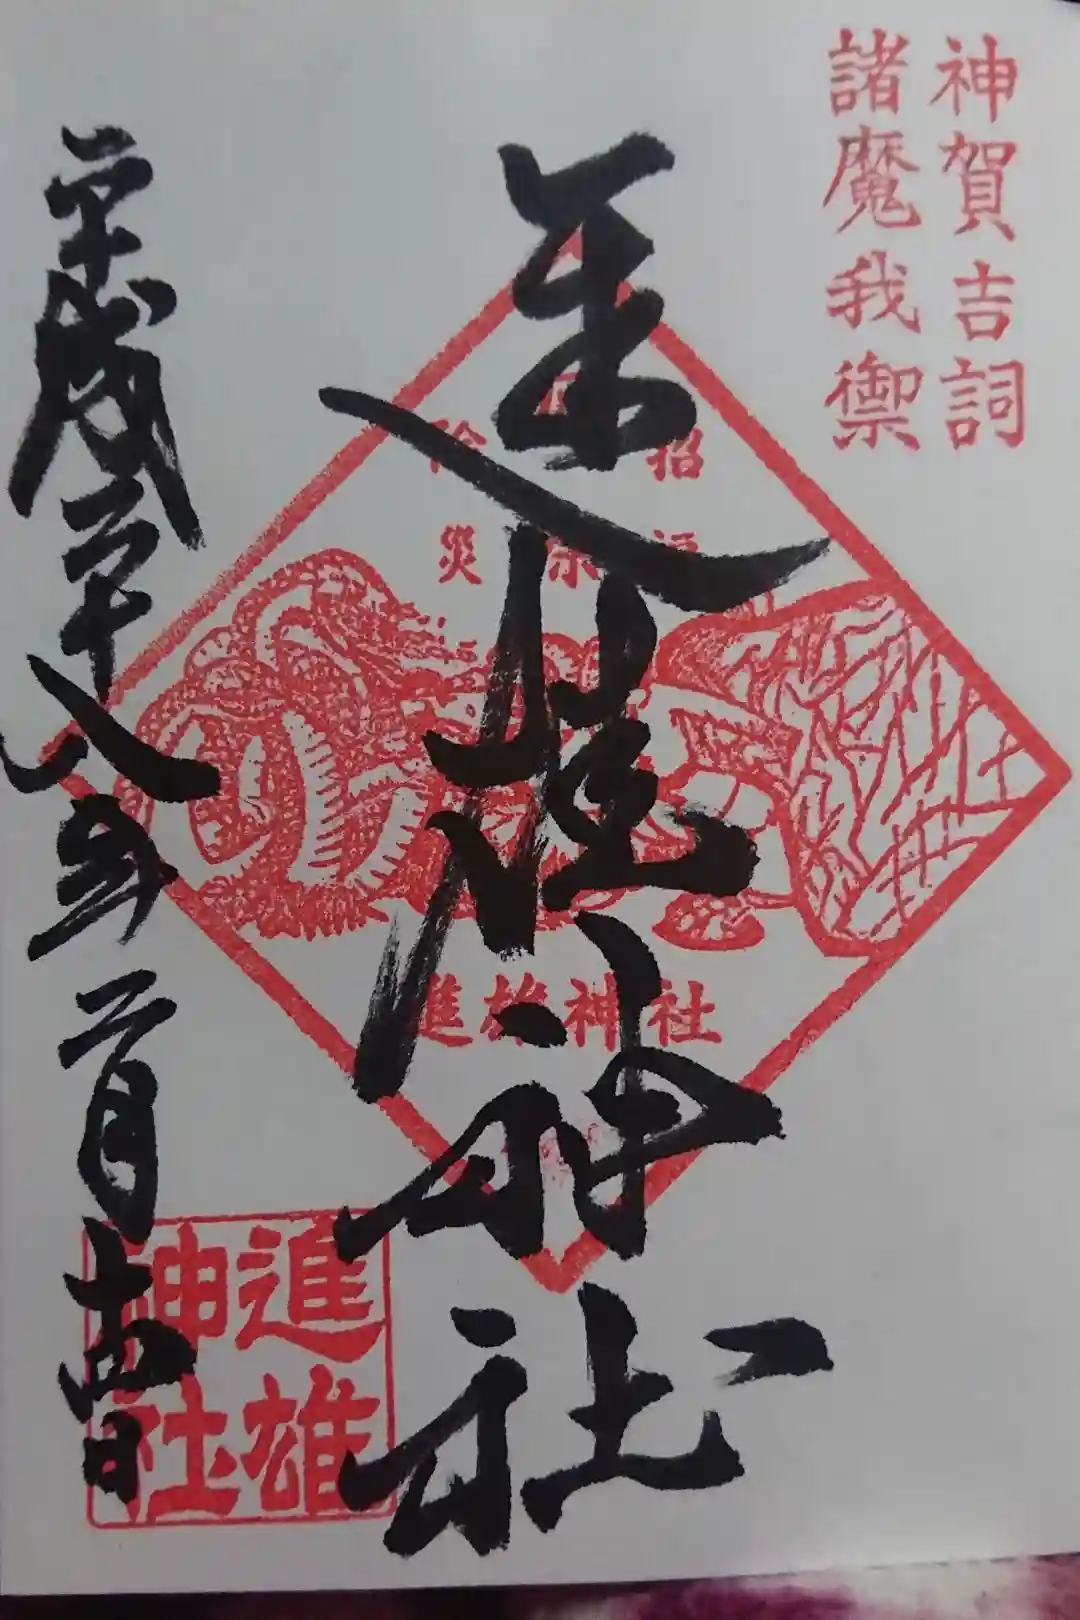 神賀吉詞
諸魔我禦
進雄神社
招福
除災
進雄神社
平成二十八年二月十四日
進雄
神社